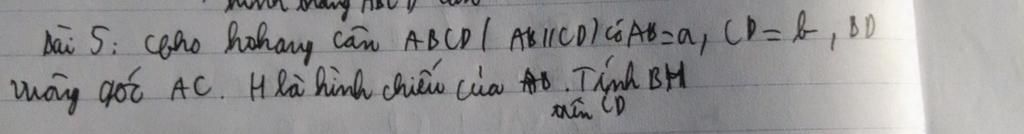 hình thang ABCD
Bài 5: Cho hthang cân ABCD ( AB//CD) có AB=a, CD=b, BD
vuông góc AC. H là hình chiếu của B. Tính BH
trên CD